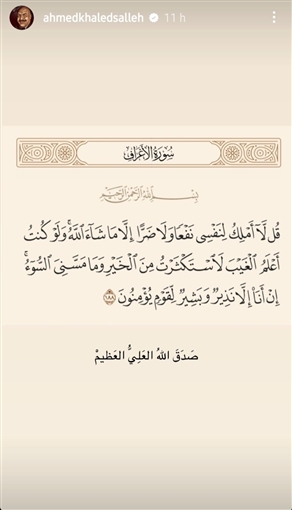 ahmedkhaledsalleh 11 h
سُورَةُ الأَعْرَافِ
بِسْمِ اللَّهِ الرَّحْمَٰنِ الرَّحِيمِ
قُل لَّآ أَمْلِكُ لِنَفْسِى نَفْعًا وَلَا ضَرًّا إِلَّا مَا شَآءَ ٱللَّهُ ۚ وَلَوْ كُنتُ
أَعْلَمُ ٱلْغَيْبَ لَٱسْتَكْثَرْتُ مِنَ ٱلْخَيْرِ وَمَا مَسَّنِىَ ٱلسُّوٓءُ ۚ
إِنْ أَنَا۠ إِلَّا نَذِيرٌ وَبَشِيرٌ لِّقَوْمٍ يُؤْمِنُونَ ١٨٨
صَدَقَ اللهُ العَلِيُّ العَظيمْ